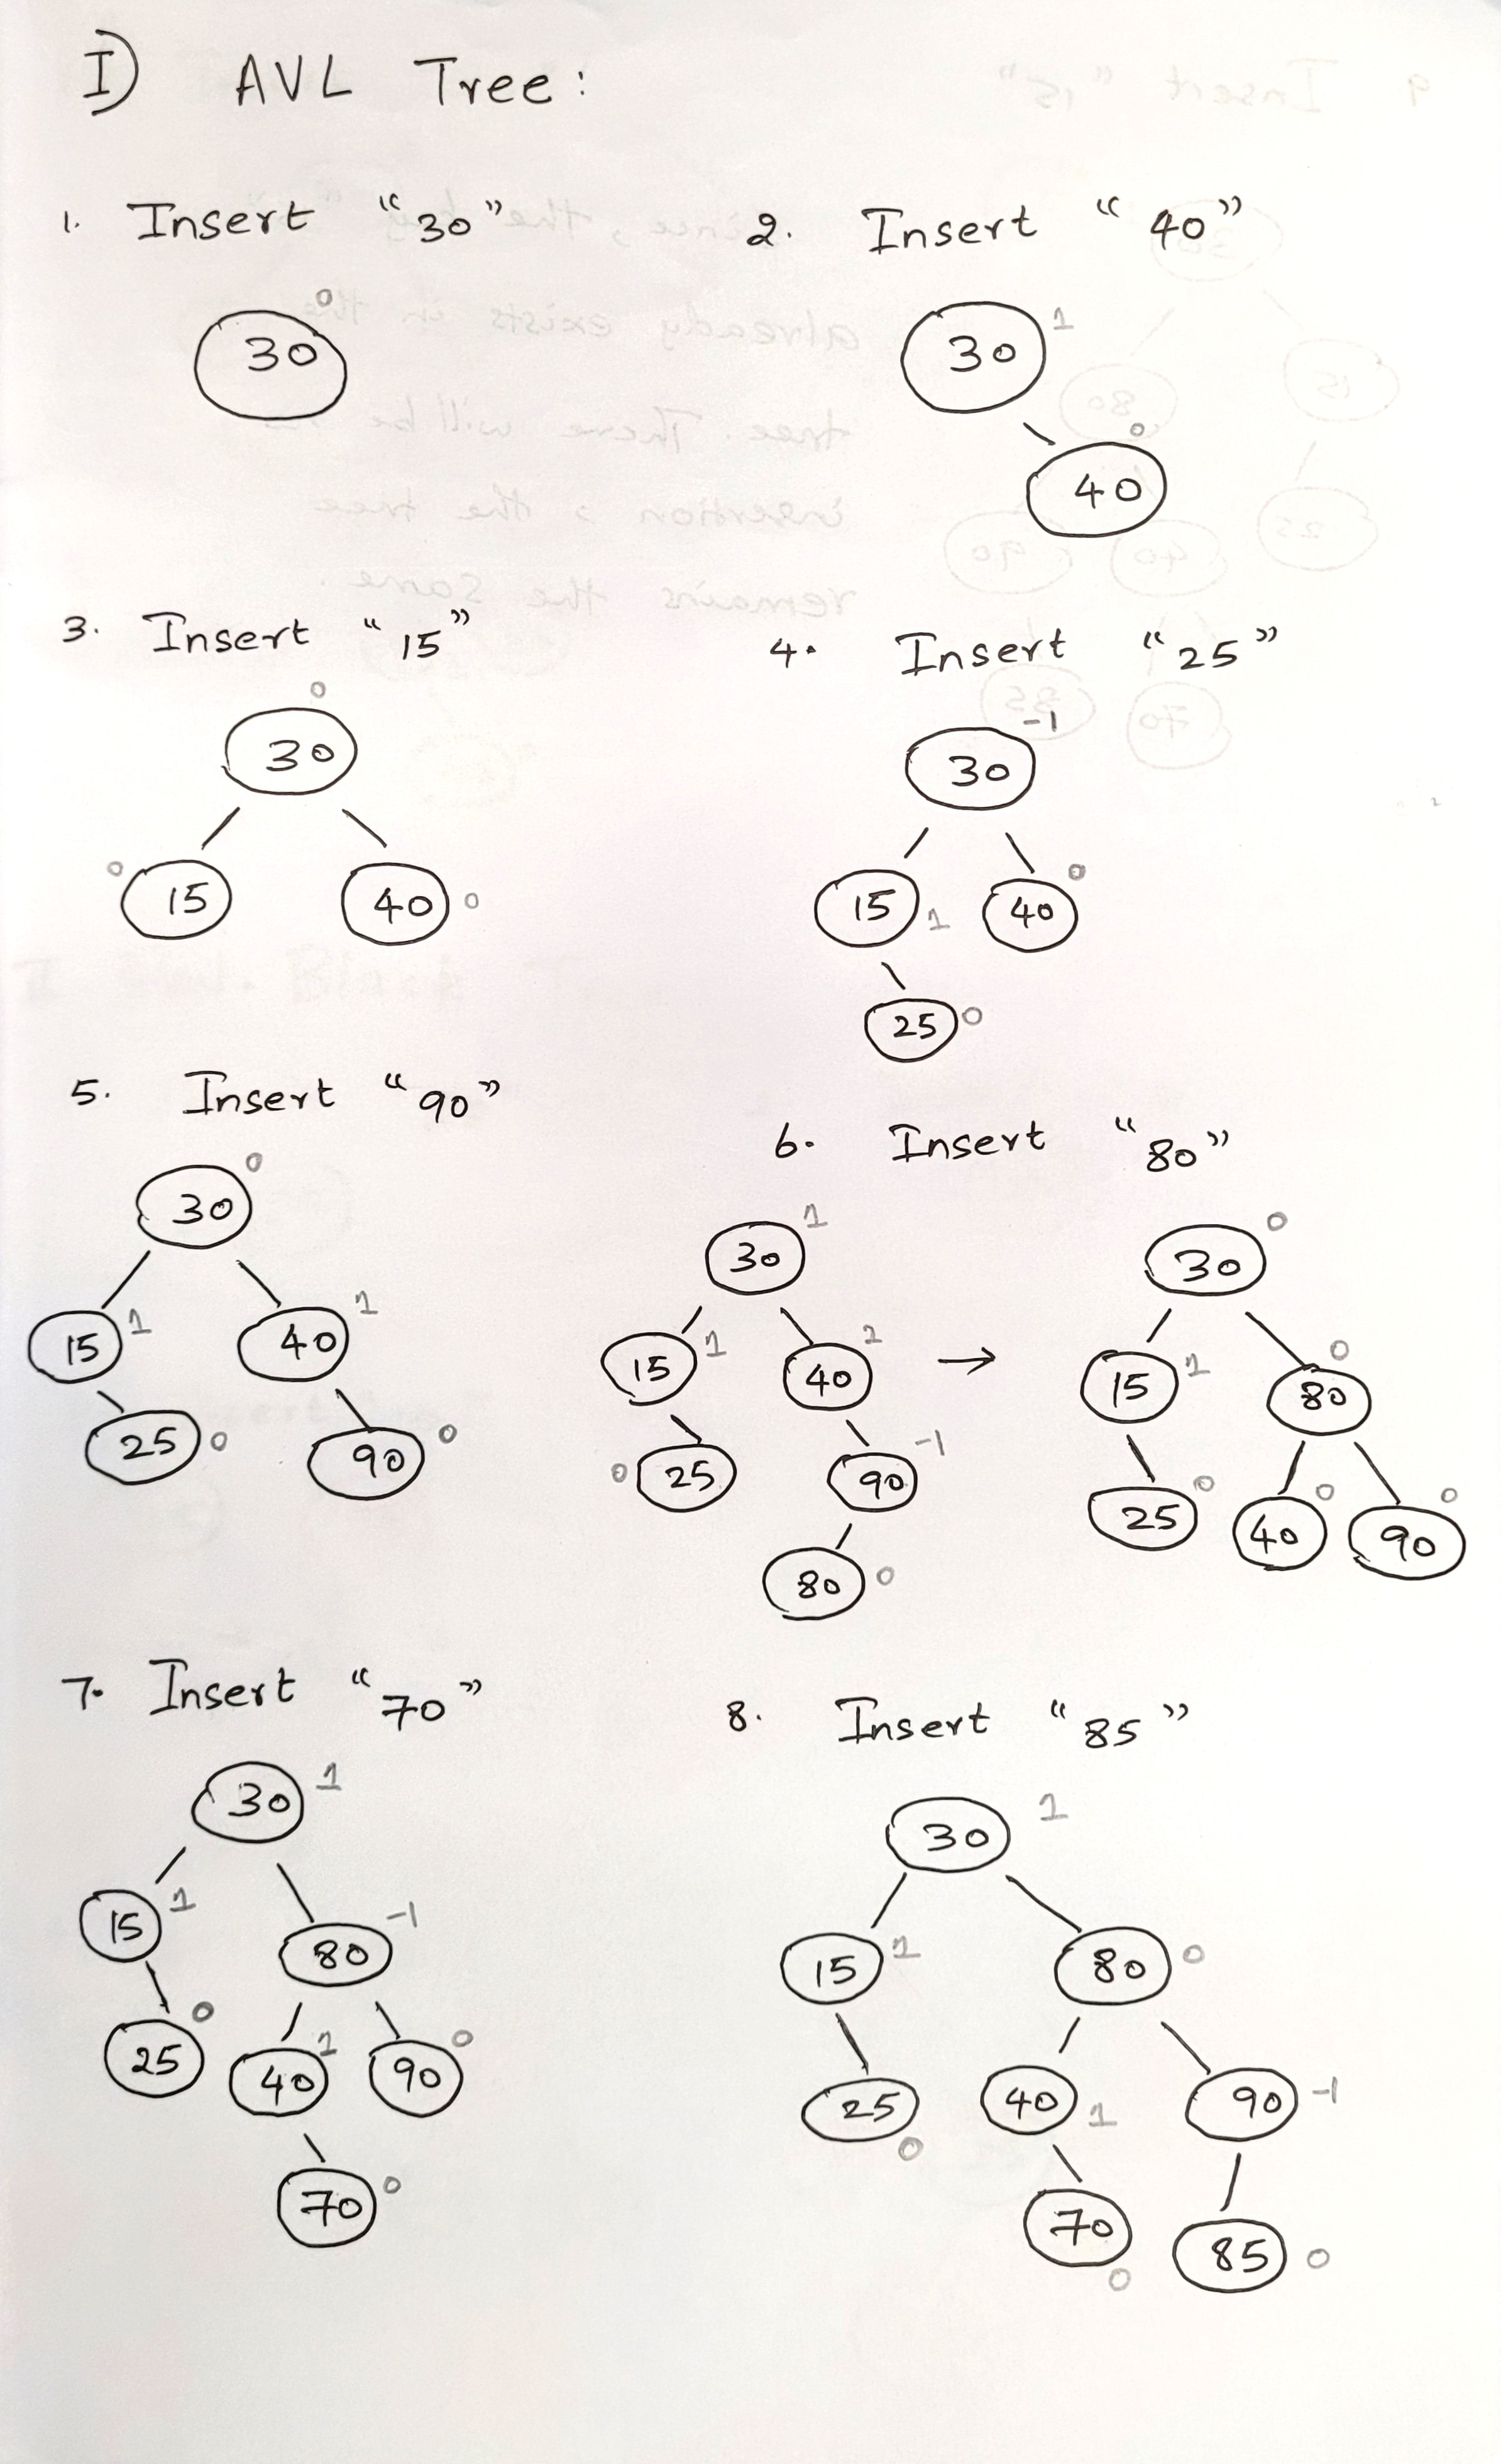 I) AVL Tree:
1. Insert "30"
0
30
2. Insert "40"
30 1
0
40
3. Insert "15"
0
30
0 15 40 0
4. Insert "25"
-1
30
15 1 40 0
25 0
5. Insert "90"
0
30
15 1 40 1
25 0 90 0
6. Insert "80"
30 1
15 1 40 2
0 25 90 -1
80 0
→
30 0
15 1 80 0
25 0 40 0 90 0
7. Insert "70"
30 1
15 1 80 -1
25 0 40 1 90 0
70 0
8. Insert "85"
30 1
15 1 80 0
25 0 40 1 90 -1
70 0 85 0